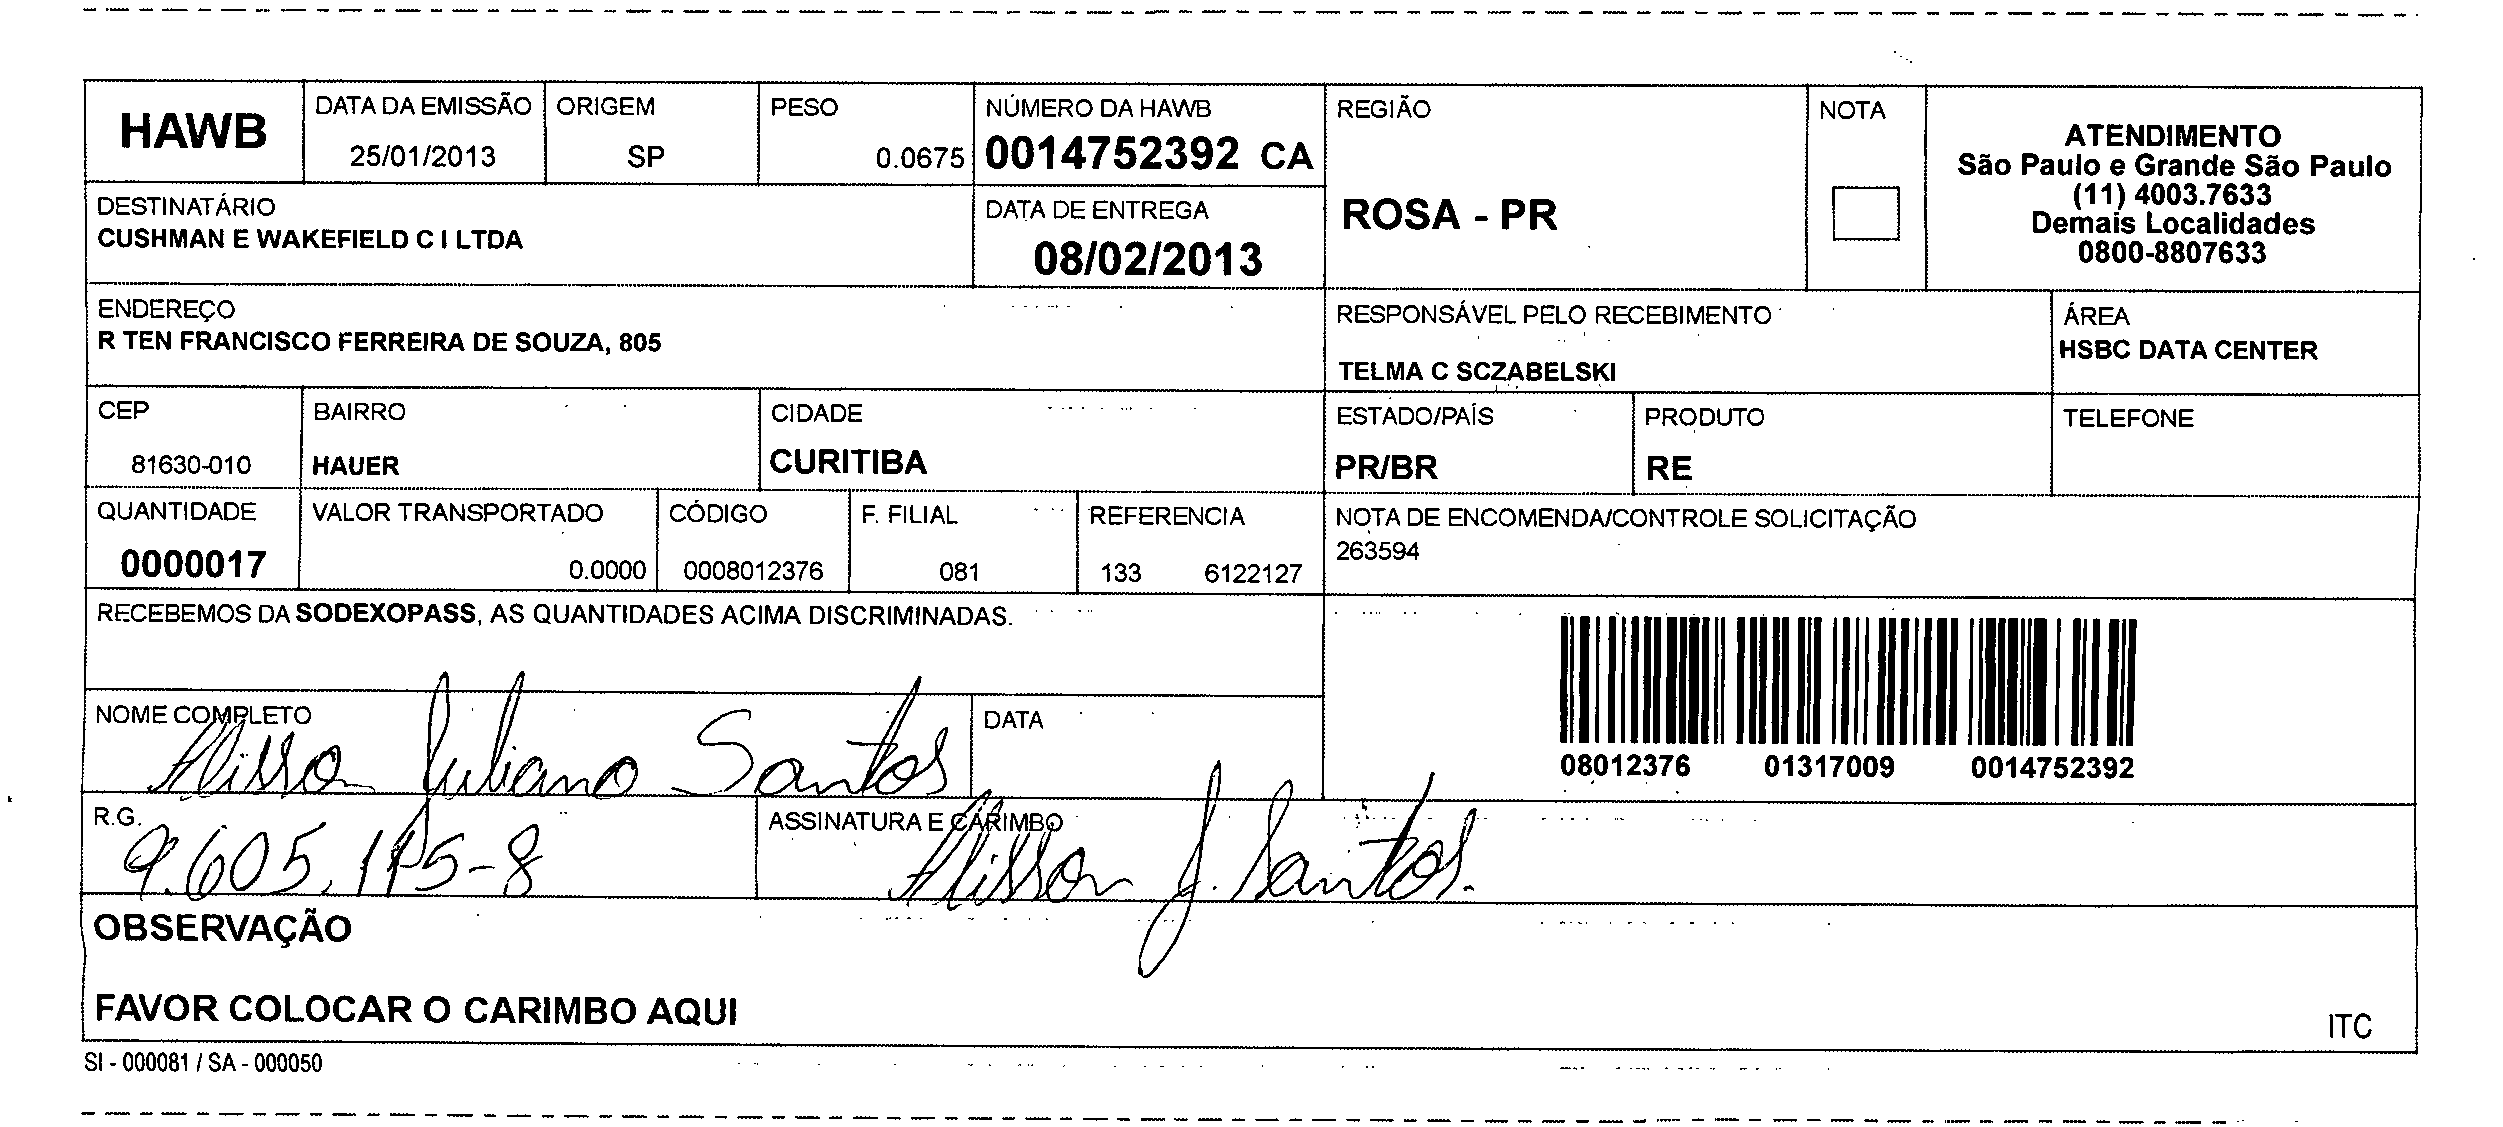 HAWB
DATA DA EMISSÃO
25/01/2013
ORIGEM
SP
PESO
0.0675
NÚMERO DA HAWB
0014752392 CA
REGIÃO
ROSA - PR
NOTA
ATENDIMENTO
São Paulo e Grande São Paulo
(11) 4003.7633
Demais Localidades
0800-8807633
DESTINATÁRIO
CUSHMAN E WAKEFIELD C I LTDA
DATA DE ENTREGA
08/02/2013
ENDEREÇO
R TEN FRANCISCO FERREIRA DE SOUZA, 805
RESPONSÁVEL PELO RECEBIMENTO
TELMA C SCZABELSKI
ÁREA
HSBC DATA CENTER
CEP
81630-010
BAIRRO
HAUER
CIDADE
CURITIBA
ESTADO/PAÍS
PR/BR
PRODUTO
RE
TELEFONE
QUANTIDADE
0000017
VALOR TRANSPORTADO
0.0000
CÓDIGO
0008012376
F. FILIAL
081
REFERENCIA
133 6122127
NOTA DE ENCOMENDA/CONTROLE SOLICITAÇÃO
263594
RECEBEMOS DA SODEXOPASS, AS QUANTIDADES ACIMA DISCRIMINADAS.
08012376 01317009 0014752392
NOME COMPLETO
Alisson Juliano Santos
DATA
R.G.
ASSINATURA E CARIMBO
Alisson J. Santos.
OBSERVAÇÃO
FAVOR COLOCAR O CARIMBO AQUI
ITC
SI - 000081 / SA - 000050